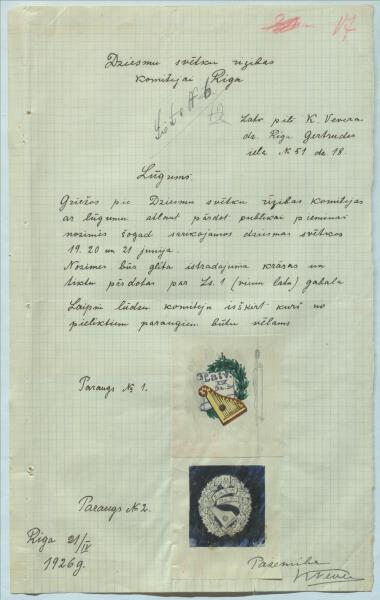 17
Dziesmu svētku rīzības
komitejai Rīgā
Latv. pils. K. Vevera
dz. Rīgā Ģertrudes
ielā № 51 dz. 18.
Lūgums.
Griežos pie Dziesmu svētku rīzības komitejas
ar lūgumu atļaut pārdot publikai piemiņas
nozīmes šogad sarīkojamos dziesmas svētkos
19. 20 un 21 junijā.
Nozīmes būs glīta izstrādājuma krāsās un
tiktu pārdotas par Ls. 1 (vienu latu) gabalā
Laipni lūdzu komiteju izšķirt kurš no
pieliktiem paraugiem būtu vēlams
Paraugs № 1.
Latv.
Paraugs № 2.
Rīgā 21/IV
1926 g.
Pazemībā